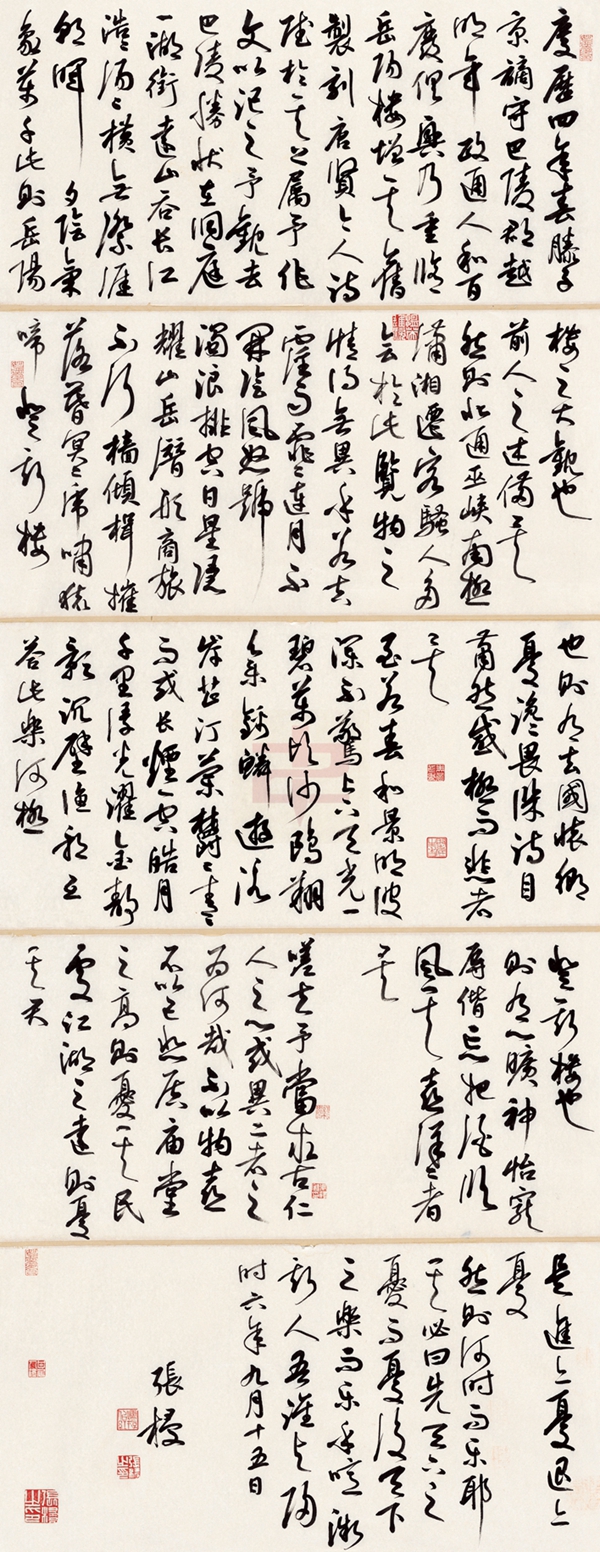 慶曆四年春滕子
京謫守巴陵郡越
明年政通人和百
廢俱興乃重脩
岳陽樓增其舊
製刻唐賢今人詩
賦於其上屬予作
文以記之予觀夫
巴陵勝狀在洞庭
一湖銜遠山吞長江
浩湯湯橫無際涯
朝暉夕陰氣
象萬千此則岳陽
樓之大觀也
前人之述備矣
然則北通巫峽南極
瀟湘遷客騷人多
會於此覽物之
情得無異乎若夫
霪雨霏霏連月不
開陰風怒號
濁浪排空日星隱
耀山岳潛形商旅
不行檣傾楫摧
薄暮冥冥虎嘯猿
啼登斯樓
也則有去國懷鄉
憂讒畏譏滿目
蕭然感極而悲者
矣
至若春和景明波
瀾不驚上下天光一
碧萬頃沙鷗翔
集錦鱗游泳
岸芷汀蘭鬱鬱青青
而或長煙一空皓月
千里浮光耀金靜
影沉璧漁歌互
答此樂何極
登斯樓也
則有心曠神怡寵
辱偕忘把酒臨
風其喜洋洋者
矣
嗟夫予嘗求古仁
人之心或異二者之
為何哉不以物喜
不以己悲居廟堂
之高則憂其民
處江湖之遠則憂
其君
是進亦憂退亦
憂
然則何時而樂耶
其必曰先天下之
憂而憂後天下
之樂而樂乎噫微
斯人吾誰與歸
時六年九月十五日
張